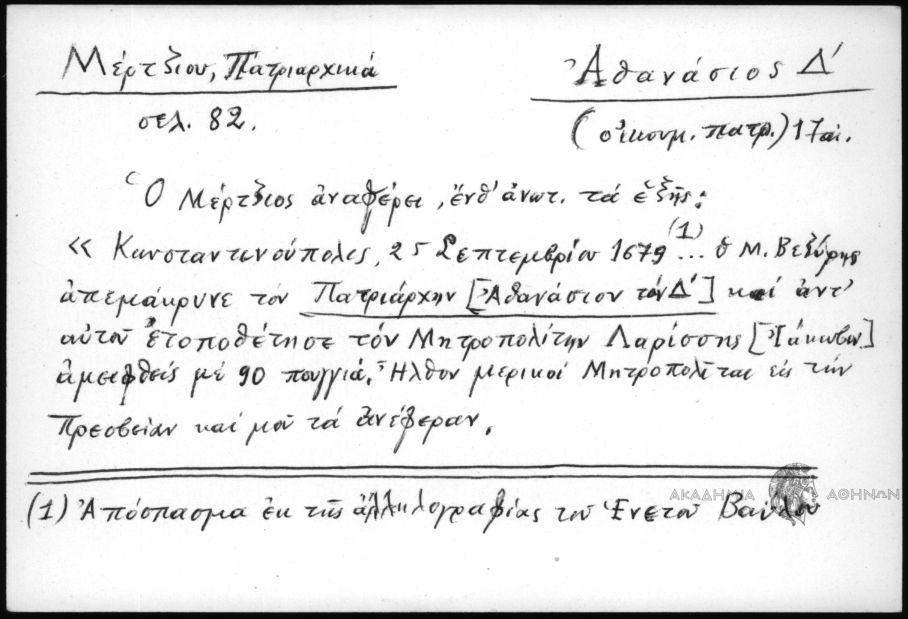 Μέρτζιου, Πατριαρχικά
Ἀθανάσιος Δ΄
σελ. 82.
(οἰκουμ. πατρ.) 17 αἰ.
Ὁ Μέρτζιος ἀναφέρει, ἔνθ' ἀνωτ. τά ἑξῆς:
« Κωνσταντινούπολις, 25 Σεπτεμβρίου 1679 (1) ... ὁ Μ. Βεζύρης
ἀπεμάκρυνε τόν Πατριάρχην [Ἀθανάσιον τόν Δ΄] καί ἀντ'
αὐτοῦ ἐτοποθέτησε τόν Μητροπολίτην Λαρίσσης [Ἰάκωβον]
ἀμειφθείς μέ 90 πουγγιά. Ἦλθον μερικοί Μητροπολῖται εἰς τήν
Πρεσβείαν καί μοῦ τά ἀνέφεραν.
ΑΚΑΔΗΜΙΑ ΑΘΗΝΩΝ
(1) Ἀπόσπασμα ἐκ τῆς ἀλληλογραφίας τοῦ Ἑνετοῦ Βαύλου